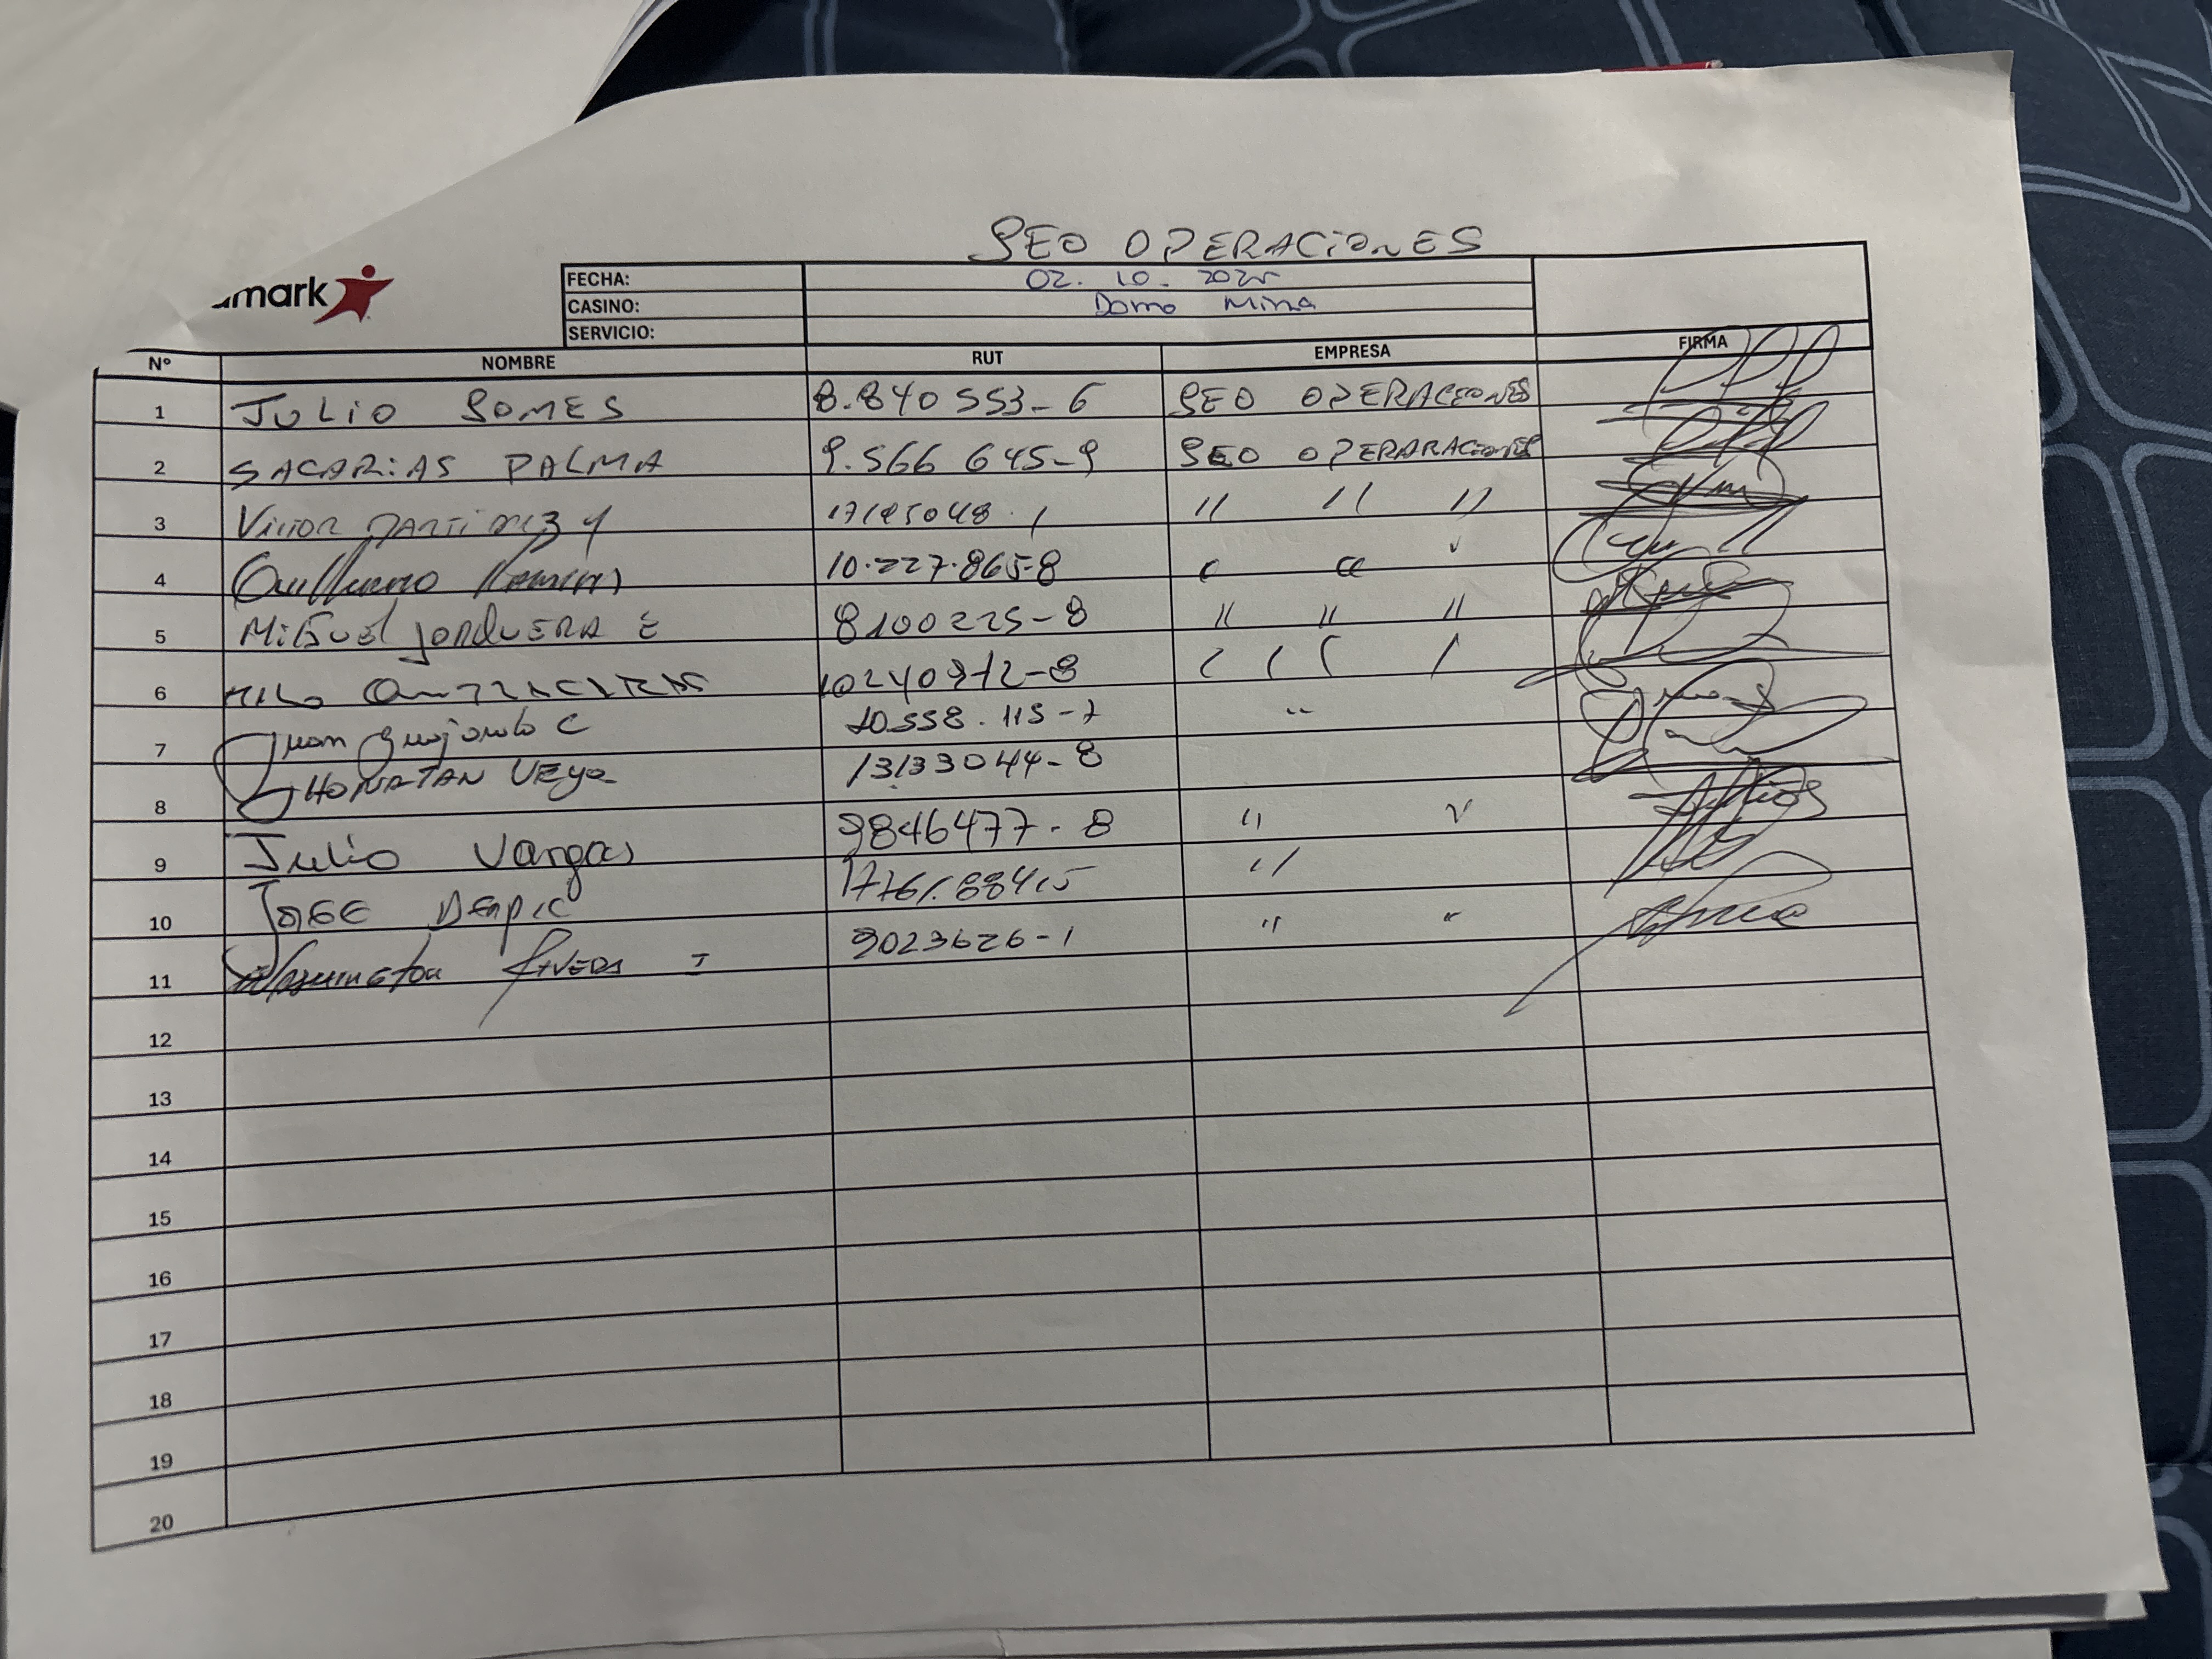 SEO OPERACIONES
amark
FECHA: 02. 10. 2025
CASINO: Domo Mina
SERVICIO:
Nº NOMBRE RUT EMPRESA FIRMA
1 JULIO GOMES 8.840 553-6 SEO OPERACIONES
2 SACARIAS PALMA 9.566 645-9 SEO OPERARACIONES
3 Victor 1 " " "
4 Guillermo 10.227.865-8
5 Miguel JORQUERA E 8100225-8 " " "
6 10240972-8
7 Juan Guajardo C 10.558.115-7 "
8 JHONATAN VEGA 13133044-8
9 Julio Vargas 9846477-8 "
10 JOSE "
11 Washington RIVERA I 9023626-1 " "
12
13
14
15
16
17
18
19
20